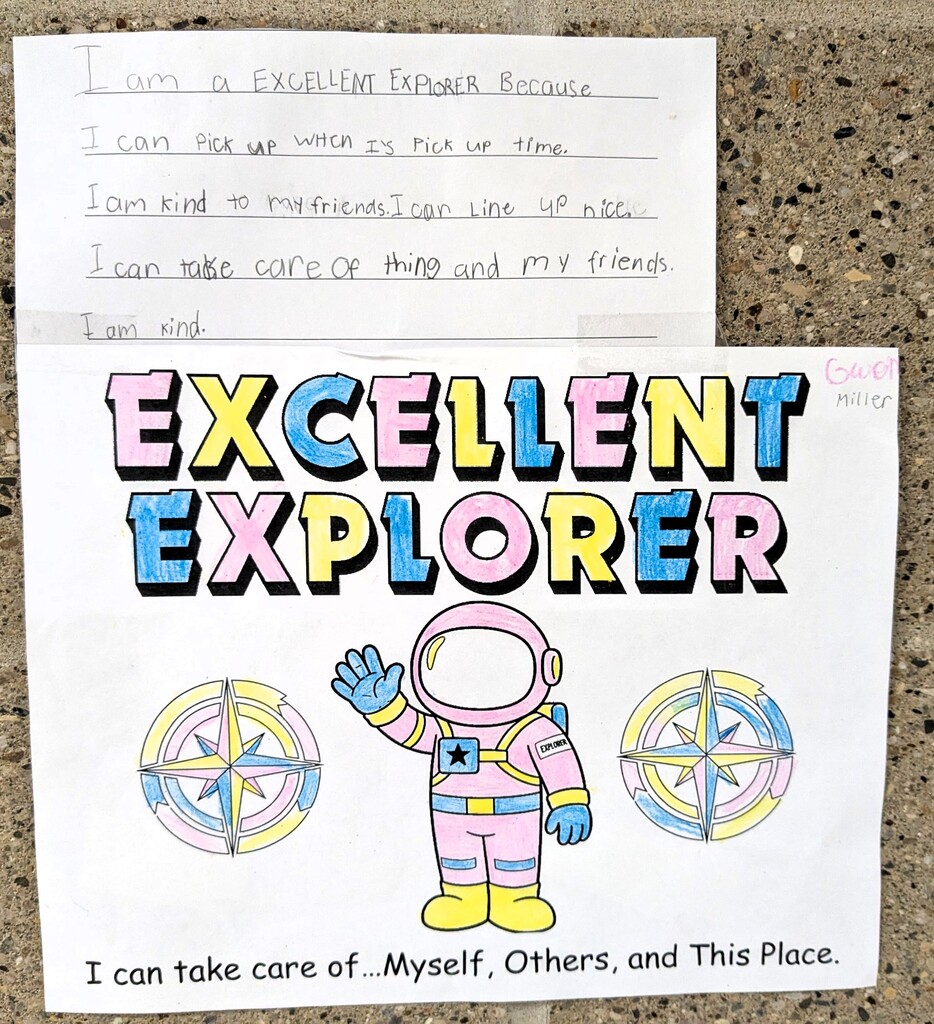 I am a EXCELLENT EXPLORER Because
I can Pick up WHen I's Pick up time.
I am kind to my friends. I can Line up nice.
I can take care of thing and my friends.
I am kind.
EXCELLENT
Miller
EXPLORER
EXPLORER
I can take care of...Myself, Others, and This Place.